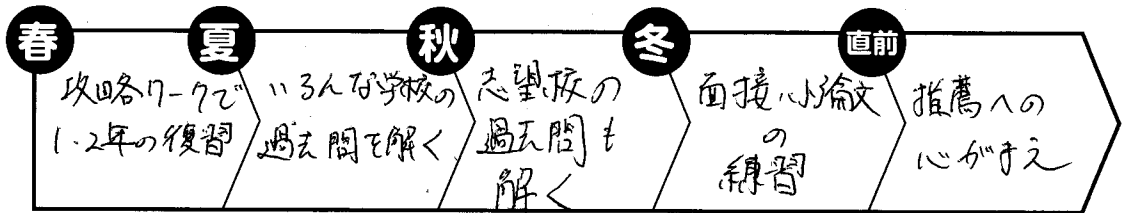 春
攻略ワークで
1・2年の復習
夏
いろんな学校の
過去問を解く
秋
志望校の
過去問も
解く
冬
面接・小論文
の
練習
直前
推薦への
心がまえ